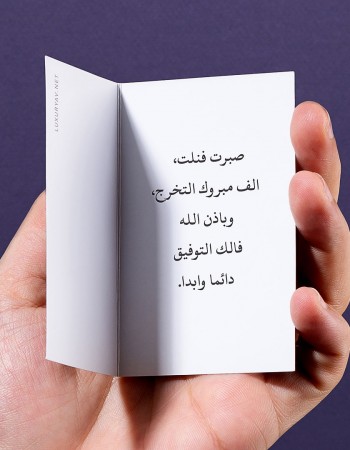 صبرت فنلت،
الف مبروك التخرج،
وباذن الله
فالك التوفيق
دائما وابدا.